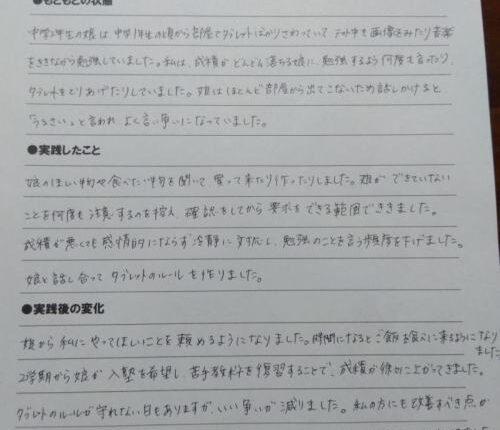 ●もともとの状態
中学2年生の娘は中学1年生の頃から部屋でタブレットばかりさわっていて、テスト中も画像をみたり音楽
をききながら勉強していました。私は、成績がどんどん落ちる娘に、勉強するよう何度も言ったり、
タブレットをとりあげたりしていました。娘はほとんど部屋から出てこないため話しかけると、
「うるさい」と言われ よく言い争いになっていました。
●実践したこと
娘のほしい物や食べたい物を聞いて、買って来たり作ったりしました。娘ができていない
ことを何度も注意するのを控え、確認をしてから要求をできる範囲でききました。
成績が悪くても感情的にならず冷静に対応し、勉強のことを言う頻度を下げました。
娘と話し合ってタブレットのルールを作りました。
●実践後の変化
娘から私にやってほしいことを頼めるようになりました。時間になるとご飯を食べに来るようになり
ました
2学期から娘が入塾を希望し、苦手教科を復習することで、成績が徐々に上がってきました。
タブレットのルールが守れない日もありますが、いい争いが減りました。私の方にも改善すべき点が